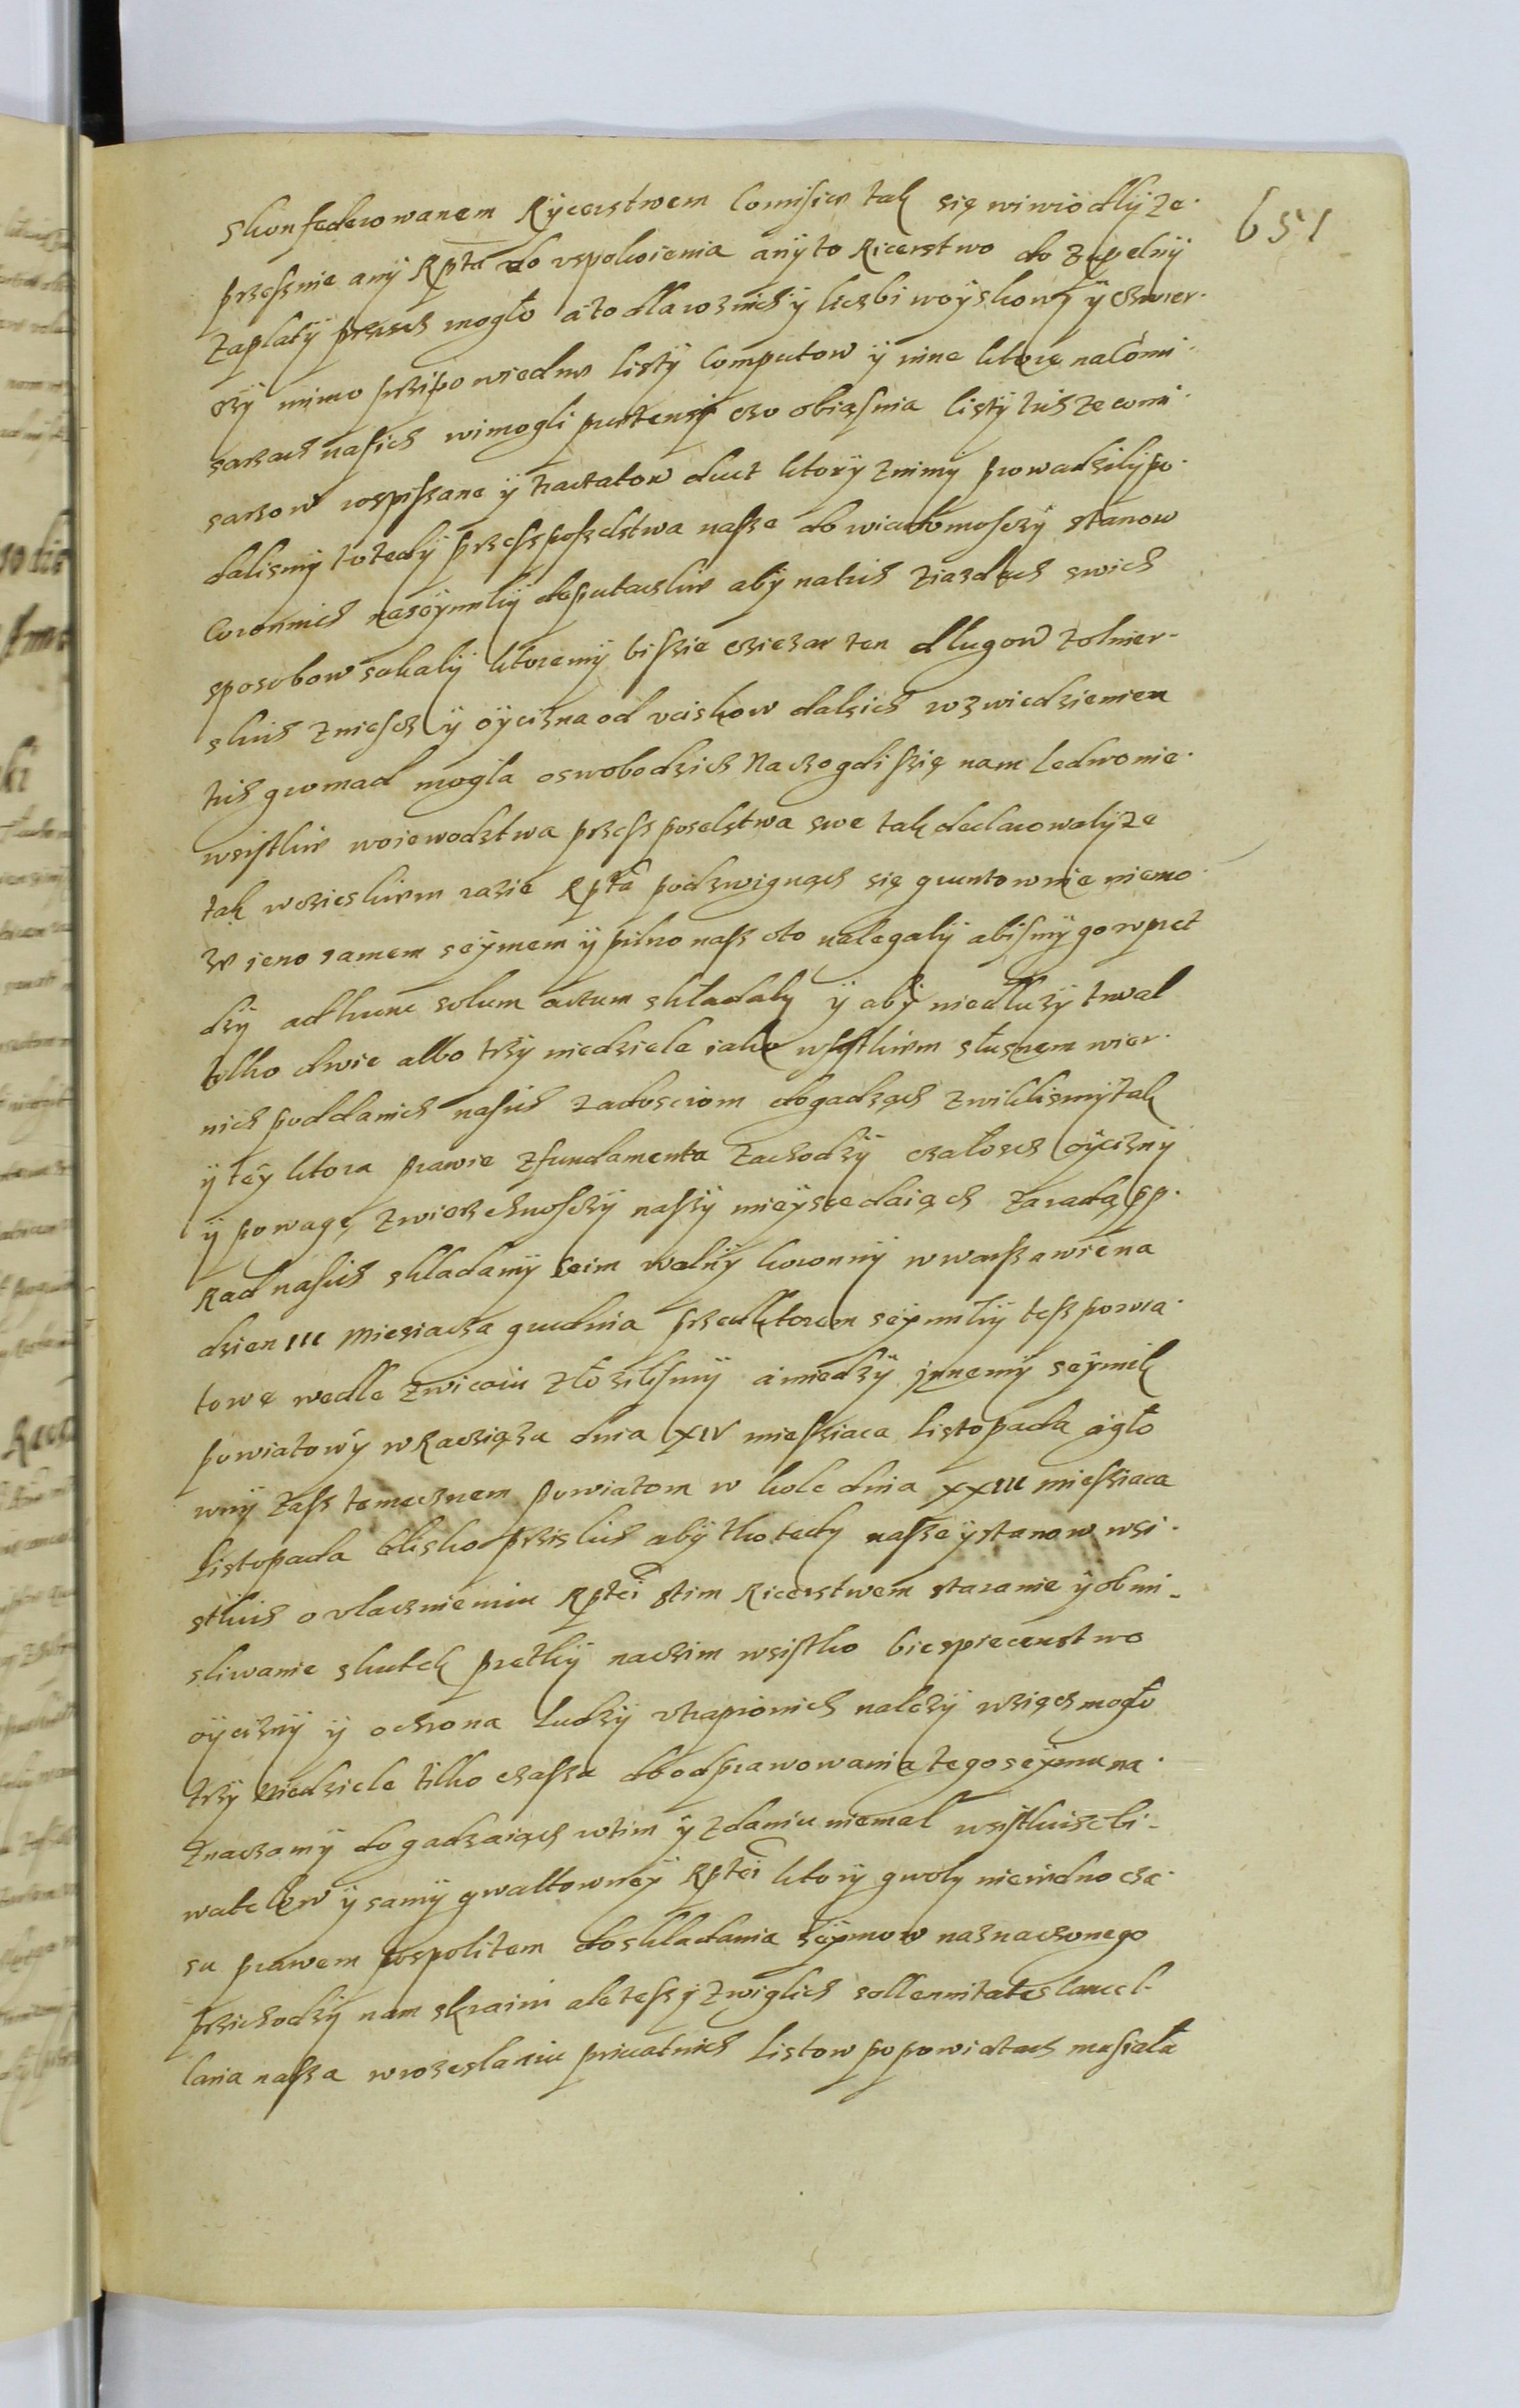 651
skonfederowanem Rÿcerstwem Comisie tak się wiwiodłÿ ze
przessnie anÿ Rptā do vspokoienia anÿ to Ricerstwo do zupelnÿ
zaplatÿ prziscz mogło a to dla roznich ÿ liczbi woÿskowÿ ÿ czwier-
czÿ mimo przipowiedne listÿ Computow ÿ inne ktorę na Comi-
sarzach nasich wimogli pretensÿ czo obięsnia listÿ tich ze comi-
sarzow rospissane ÿ tractatow duct ktorÿ z nimÿ prowadzilÿ po-
dalismÿ to tedÿ przess poselstwa nasse do wiadomosczÿ stanow
Coronnich na seÿmkÿ deputackie abÿ na tich ziazdach swich
sposobow sukalÿ ktoremÿ bi szie cziezar ten dlugow zolnier-
skich zniescz ÿ oÿcizna od vciskow dalsich rozwiedzieniem
tich gromad mogla oswobodzicz Na czo gdi szię nam ledwo nie
wsistkie woiewodztwa przess poselstwa swe tak declarowalÿ ze
tak w cziezkiem razie Rptā podzwignącz się gruntownie niemo
ze ieno samem seÿmem ÿ pilno nass o to nalegalÿ abismÿ go wpręt
dzÿ ad hunc solum actum skladalÿ ÿ abÿ niedluzÿ trwal
tilko dwie albo trzÿ niedziele iako wsistkiem slusznem wier-
nich poddanich nasich zadosciom dogadząch zwiklismÿ tak
ÿ teÿ ktora prawie z fundamenta zachodzÿ czaloscz oÿciznÿ
ÿ powagę zwierzchnosczÿ naszÿ mieÿsce daiącz za radą pp.
Rad nasich skladamÿ seim walnÿ koronnÿ w warszawie na
dzien III Miesiacza grudnia przed ktorem seÿmikÿ tess powia-
towę wedle zwicaiu złozilismÿ a miedzÿ innemÿ seÿmik
powiatowÿ w Raczięzu dnia XIV miesziaca Listopada a gło
wnÿ zass tamecznem powiatom w kole dnia XXIII miesziaca
Listopada blisko przislich abÿ tho tedÿ nasze ÿ stanow wsi-
stkich o vlacznieniu Rptēi stim Ricerstwem staranie ÿ obmi-
sliwanie skutek pretkÿ na czim wsistko biespieczenstwo
oÿciznÿ ÿ ochrona ludzÿ vtrapionich nalezÿ wziącz mogło
trzÿ Niedziele tilko czassu do odprawowania tego seÿmu na-
znaczamÿ dogadzaiącz w tim ÿ zdaniu niemal wsistkich obi-
watelow ÿ samÿ gwaltowneÿ Rptēi ktorÿ gwolÿ nieiedno cza-
su prawem pospolitem do skladania seÿmow naznaczonego
przichodzÿ nam skraini ale tess ÿ zwiglich sollennitates cancel-
laria nasza w rozeslaniu priuatnich Listow po powiatach musiała